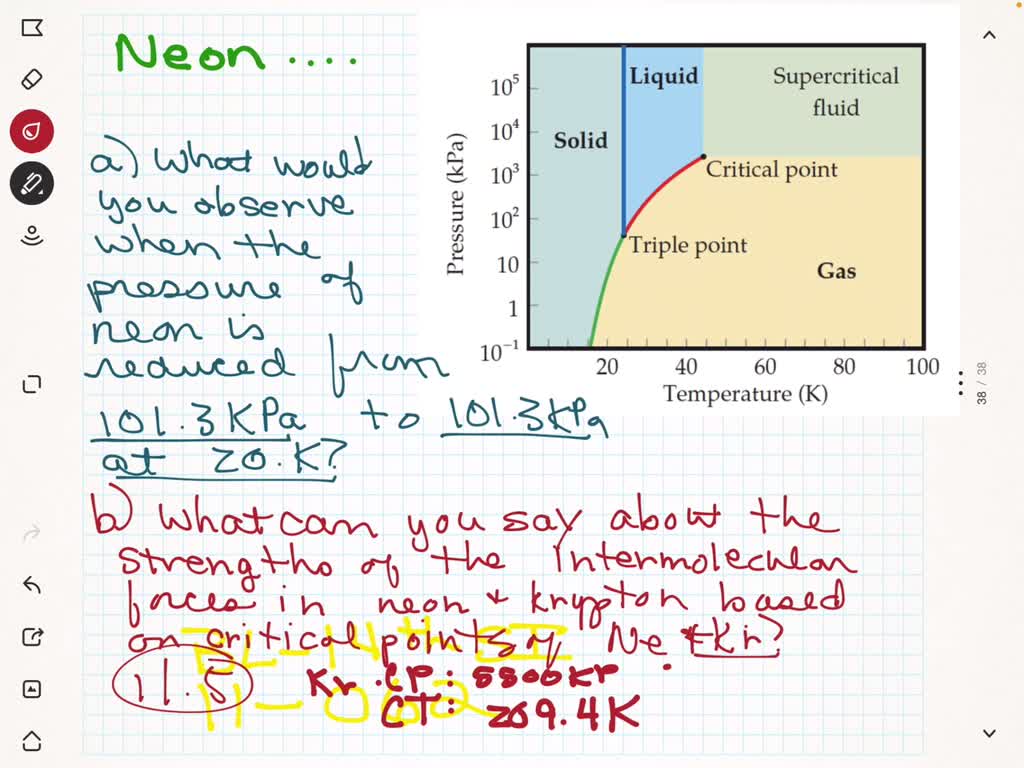 Neon ....
a) What would
you observe
when the
pressure of
neon is
reduced from
101.3 KPa to 101.3 kPa
at 20. K?
10⁵
10⁴
10³
10²
10
1
10⁻¹
Pressure (kPa)
Solid
Liquid
Supercritical
fluid
Critical point
Triple point
Gas
20 40 60 80 100
Temperature (K)
38 / 38
b) What can you say about the
strengths of the Intermolecular
forces in neon & krypton based
on critical points of Ne & Kr?
11.5 Kr CP: 5500 KP
CT: 209.4 K